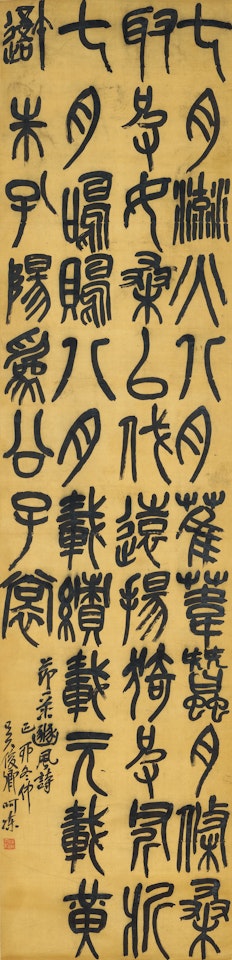 七月流火八月萑葦蠶月條桑
取彼女桑以伐遠揚猗彼斧斨
七月鳴鵙八月載績載玄載黃
我朱孔陽為公子裳
節录豳風詩
己卯冬仲
吳俊卿呵凍